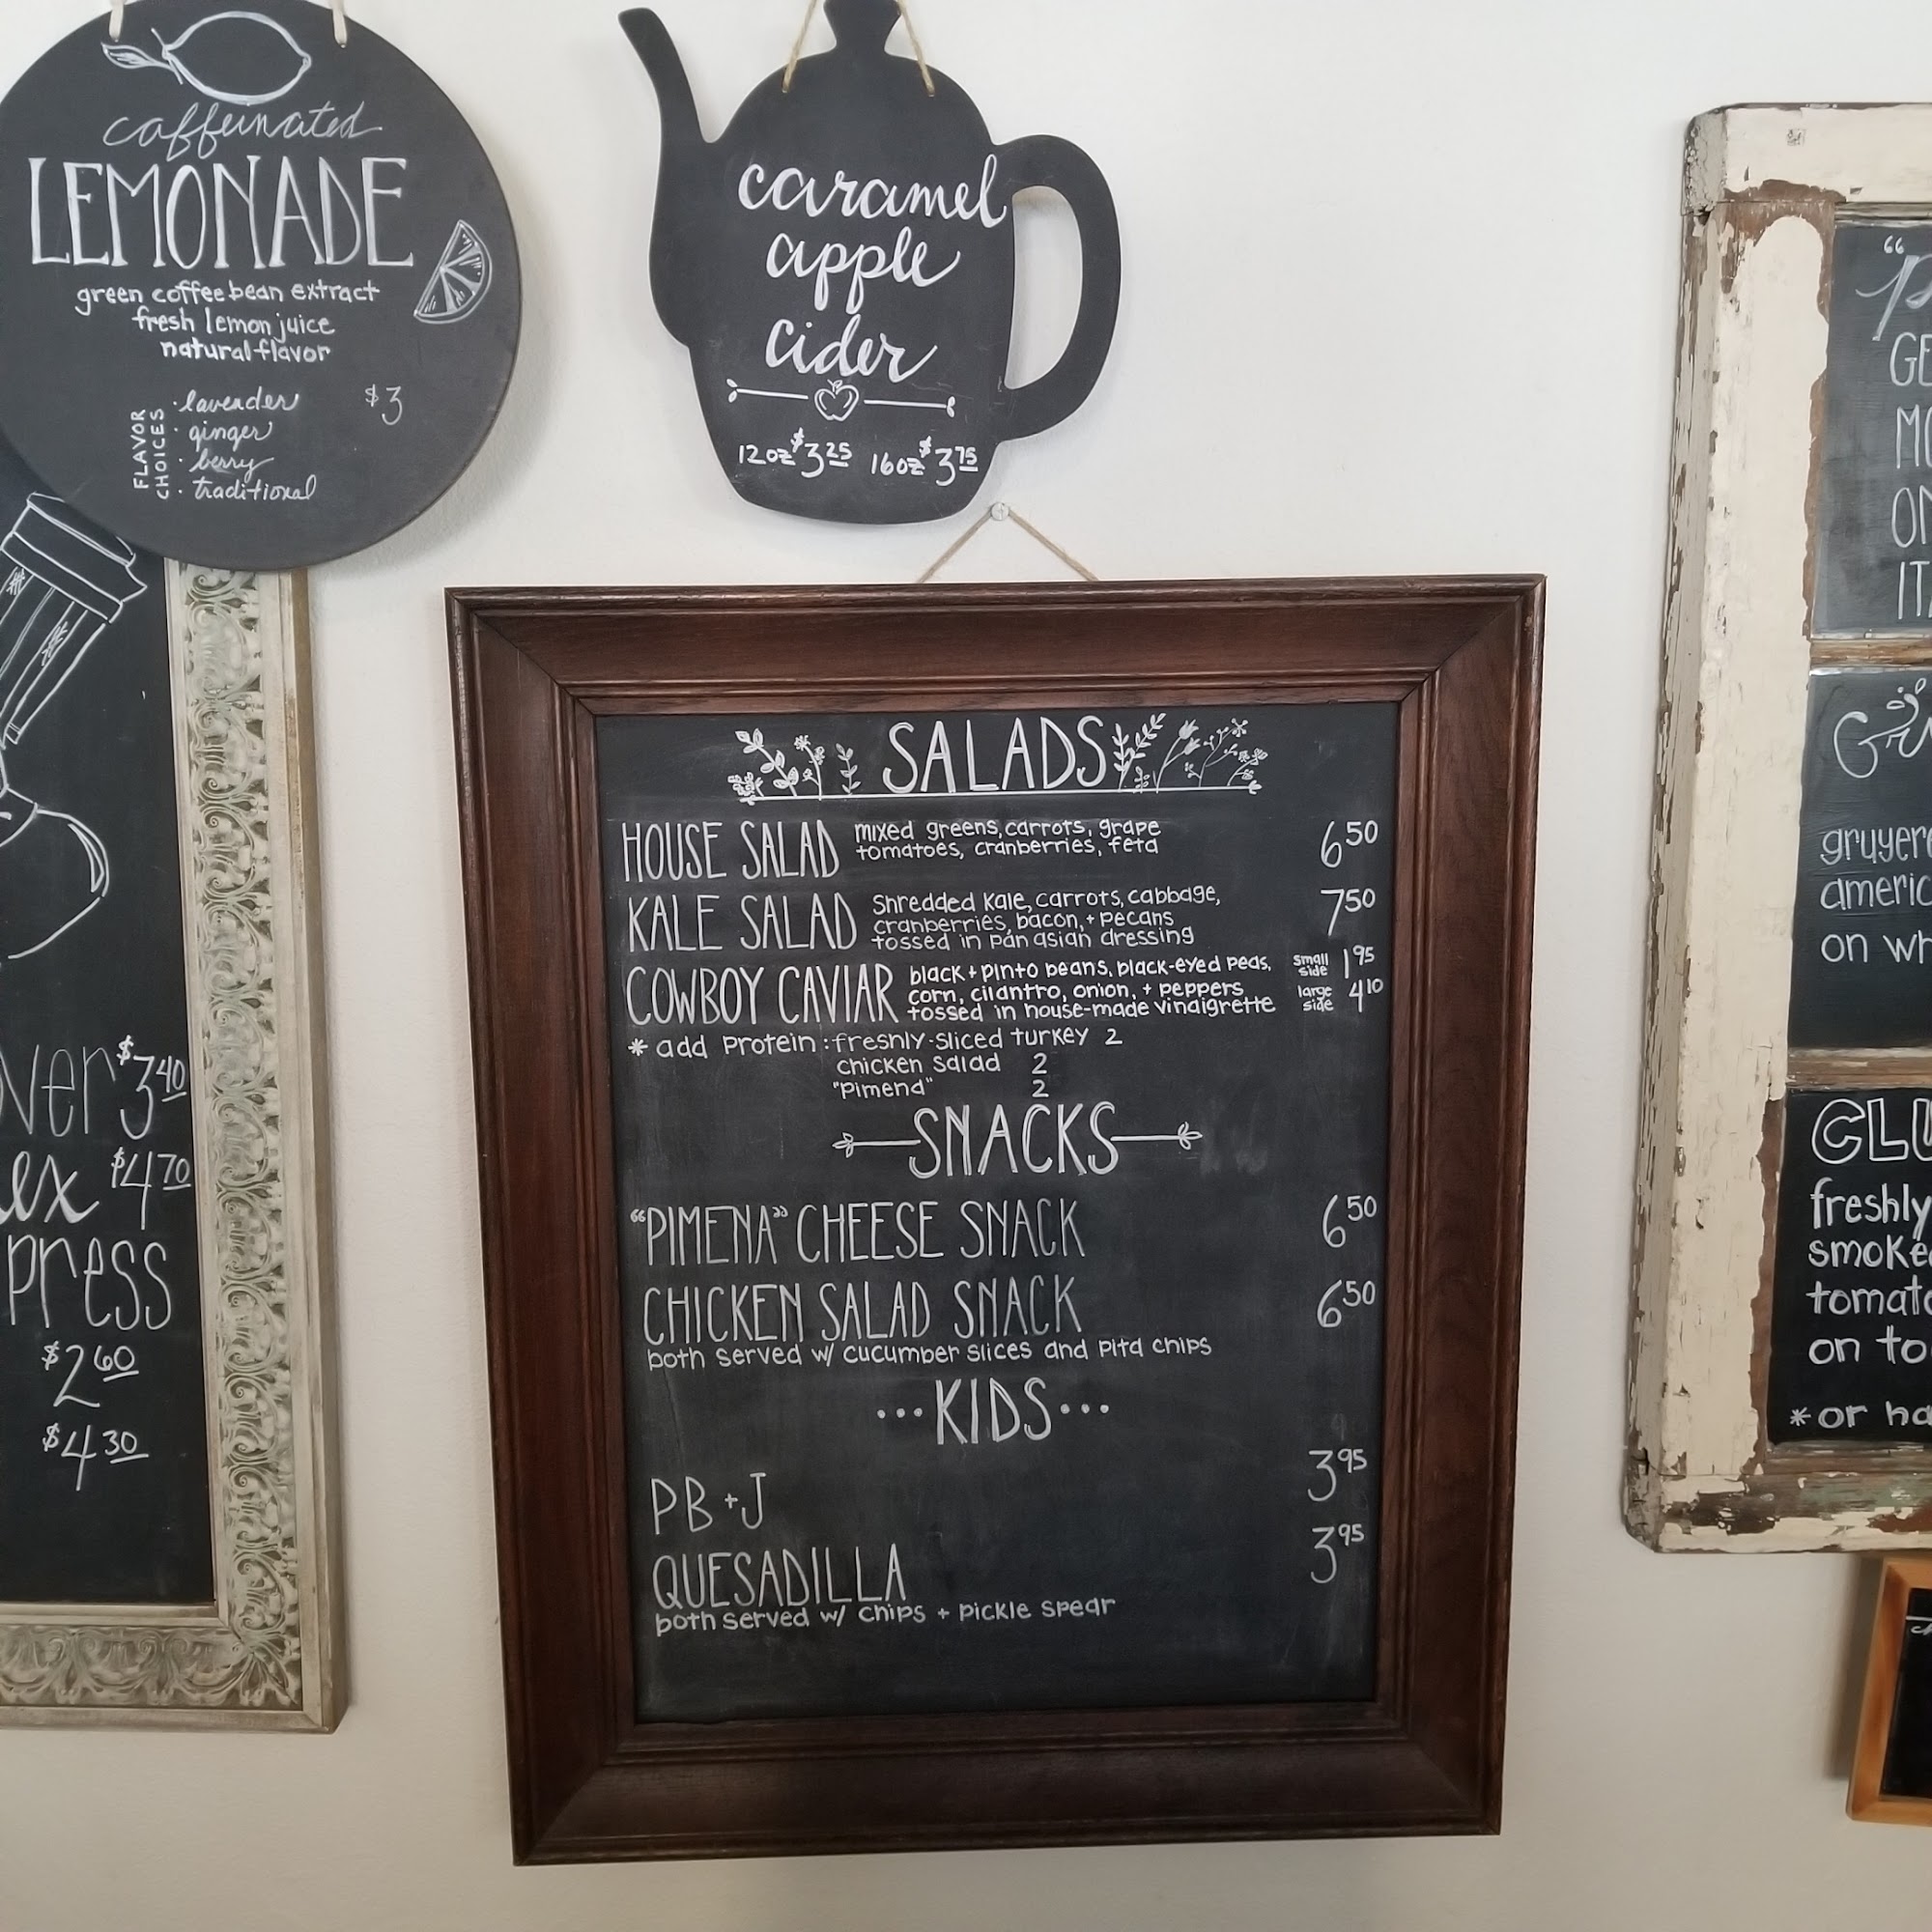 caffeinated
LEMONADE
green coffee bean extract
fresh lemon juice
natural flavor
FLAVOR
CHOICES
· lavender
· ginger
· berry
· traditional
$3
caramel
apple
cider
12oz $3.25 16oz $3.75
$3.40
$4.70
press
$2.60
$4.30
SALADS
HOUSE SALAD mixed greens, carrots, grape 6.50
tomatoes, cranberries, feta
KALE SALAD Shredded kale, carrots, cabbage, 7.50
cranberries, bacon, + pecans
tossed in pan asian dressing
COWBOY CAVIAR black + pinto beans, black-eyed peas, small side 1.95
corn, cilantro, onion, + peppers large side 4.10
tossed in house-made vinaigrette
* add protein: freshly-sliced turkey 2
chicken salad 2
"Pimena" 2
SNACKS
"PIMENA" CHEESE SNACK 6.50
CHICKEN SALAD SNACK 6.50
both served w/ cucumber slices and pita chips
...KIDS...
PB + J 3.95
QUESADILLA 3.95
both served w/ chips + pickle spear
on
freshly
on to
*or